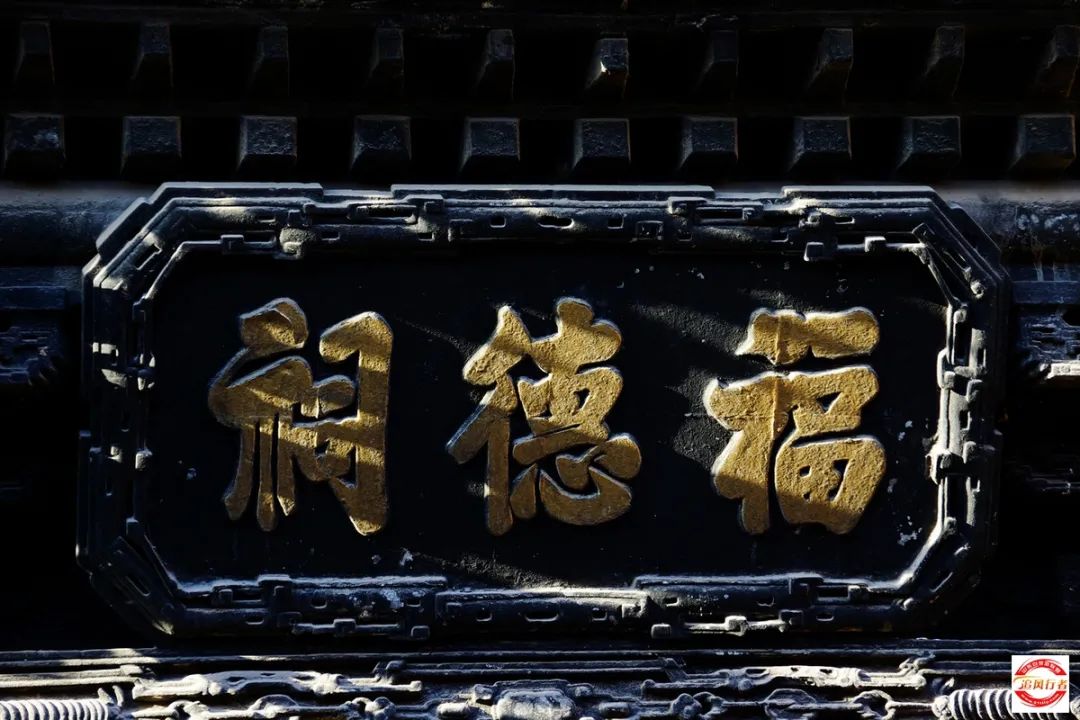 福德祠
追风行者